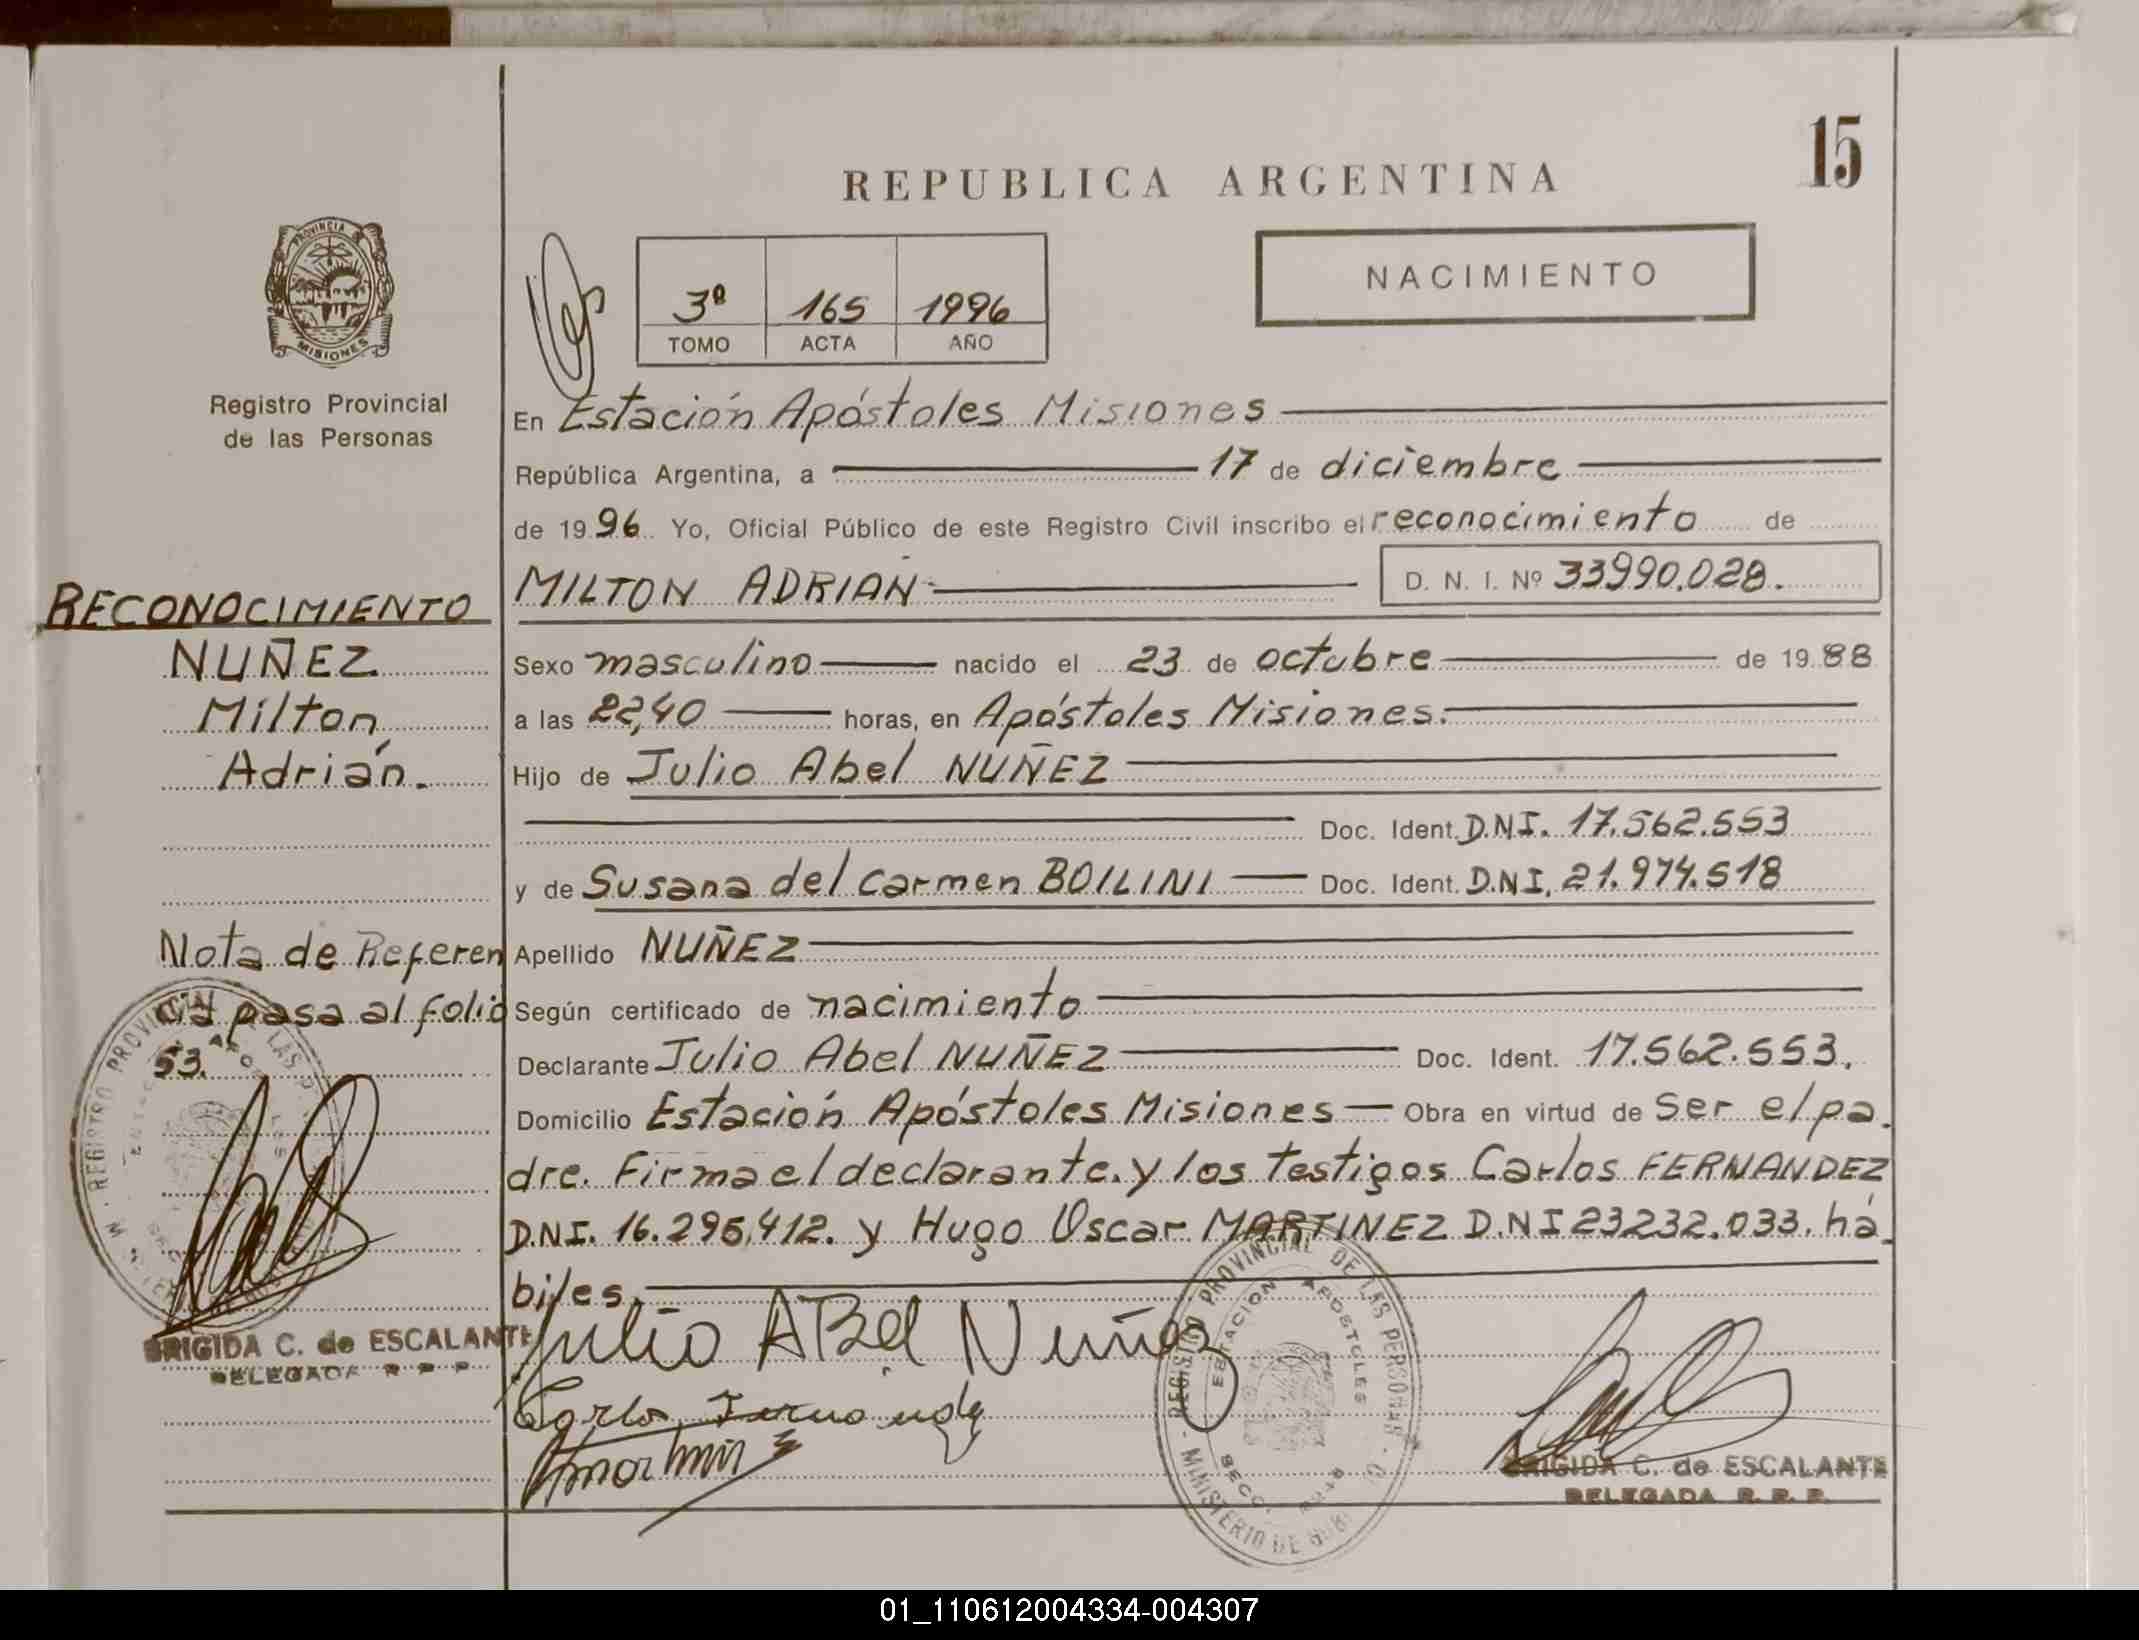 15
REPUBLICA ARGENTINA
PROVINCIA
MISIONES
Registro Provincial
de las Personas
3º 165 1996
TOMO ACTA AÑO
NACIMIENTO
En Estación Apóstoles Misiones
República Argentina, a 17 de diciembre
de 1996 Yo, Oficial Público de este Registro Civil inscribo el reconocimiento de
MILTON ADRIAN D. N. I. Nº 33990.028.
Sexo masculino nacido el 23 de octubre de 1988
a las 22,40 horas, en Apóstoles Misiones.
Hijo de Julio Abel NUÑEZ
Doc. Ident. D.N.I. 17.562.553
y de Susana del carmen BOILINI Doc. Ident. D.N.I. 21.974.518
Apellido NUÑEZ
Según certificado de nacimiento
Declarante Julio Abel NUÑEZ Doc. Ident. 17.562.553.
Domicilio Estación Apóstoles Misiones Obra en virtud de ser el pa
dre. Firma el declarante. y los testigos Carlos FERNANDEZ
D.N.I. 16.295.412. y Hugo Oscar MARTINEZ D.N.I 23232.033. há
biles.
RECONOCIMIENTO
NUÑEZ
Milton
Adrián.
Nota de Referen
cia pasa al folio
53.
BRIGIDA C. de ESCALANTE
DELEGADA R. P. P.
Julio Abel Nuñez
Carlos Fernandez
REGISTRO PROVINCIAL DE LAS PERSONAS
ESTACION APOSTOLES
MINISTERIO DE
BRIGIDA C. de ESCALANTE
DELEGADA R. P. P.
01_110612004334-004307